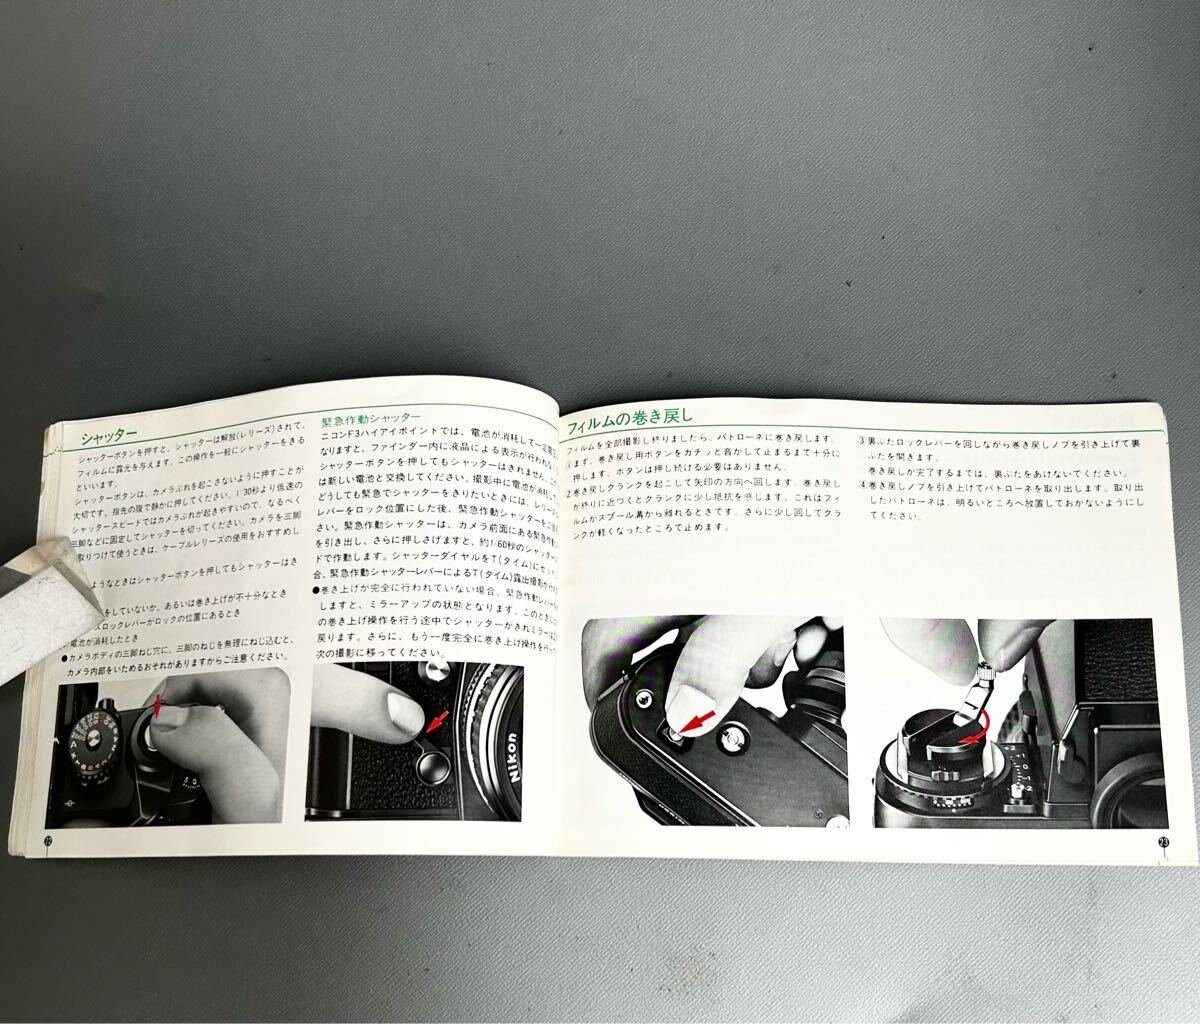 シャッター
シャッターボタンを押すと、シャッターは解放(レリーズ)されて、
フィルムに露光を与えます。この操作を一般にシャッターをきる
といいます。
シャッターボタンは、カメラぶれを起こさないように押すことが
大切です。指先の腹で静かに押してください。1/30秒より低速の
シャッタースピードではカメラぶれが起きやすいので、なるべく
三脚などに固定してシャッターを切ってください。カメラを三脚
取りつけて使うときは、ケーブルレリーズの使用をおすすめし
ようなときはシャッターボタンを押してもシャッターはき
をしていないか、あるいは巻き上げが不十分なとき
スロックレバーがロックの位置にあるとき
電池が消耗したとき
●カメラボディの三脚ねじ穴に、三脚のねじを無理にねじ込むと、
カメラ内部をいためるおそれがありますからご注意ください。
緊急作動シャッター
ニコンF3ハイアイポイントでは、電池が消耗して一定電圧
なりますと、ファインダー内に液晶による表示が行われない
シャッターボタンを押してもシャッターはきれません。この
は新しい電池と交換してください。撮影中に電池が消耗し
どうしても緊急でシャッターをきりたいときには、レリーズ
レバーをロック位置にした後、緊急作動シャッターをご使
さい。緊急作動シャッターは、カメラ前面にある緊急作動
を引き出し、さらに押しさげますと、約1/60秒のシャッター
ドで作動します。シャッターダイヤルをT(タイム)にセット
合、緊急作動シャッターレバーによるT(タイム)露出撮影が
●巻き上げが完全に行われていない場合、緊急作動レバーを
しますと、ミラーアップの状態となります。このときに
の巻き上げ操作を行う途中でシャッターがきれミラーは
戻ります。さらに、もう一度完全に巻き上げ操作を行って
次の撮影に移ってください。
A
2000
Nikon
22
フィルムの巻き戻し
フィルムを全部撮影し終りましたら、パトローネに巻き戻します。
①まず、巻き戻し用ボタンをカチッと音がして止まるまで十分に
押します。ボタンは押し続ける必要はありません。
②巻き戻しクランクを起こして矢印の方向へ回します。巻き戻し
が終りに近づくとクランクに少し抵抗を感じます。これはフィ
ルムがスプール溝から離れるときです。さらに少し回してクラ
ンクが軽くなったところで止めます。
③裏ぶたロックレバーを回しながら巻き戻しノブを引き上げて裏
ぶたを開きます。
巻き戻しが完了するまでは、裏ぶたをあけないでください。
④巻き戻しノブを引き上げてパトローネを取り出します。取り出
したパトローネは、明るいところへ放置しておかないようにし
てください。
+2
23